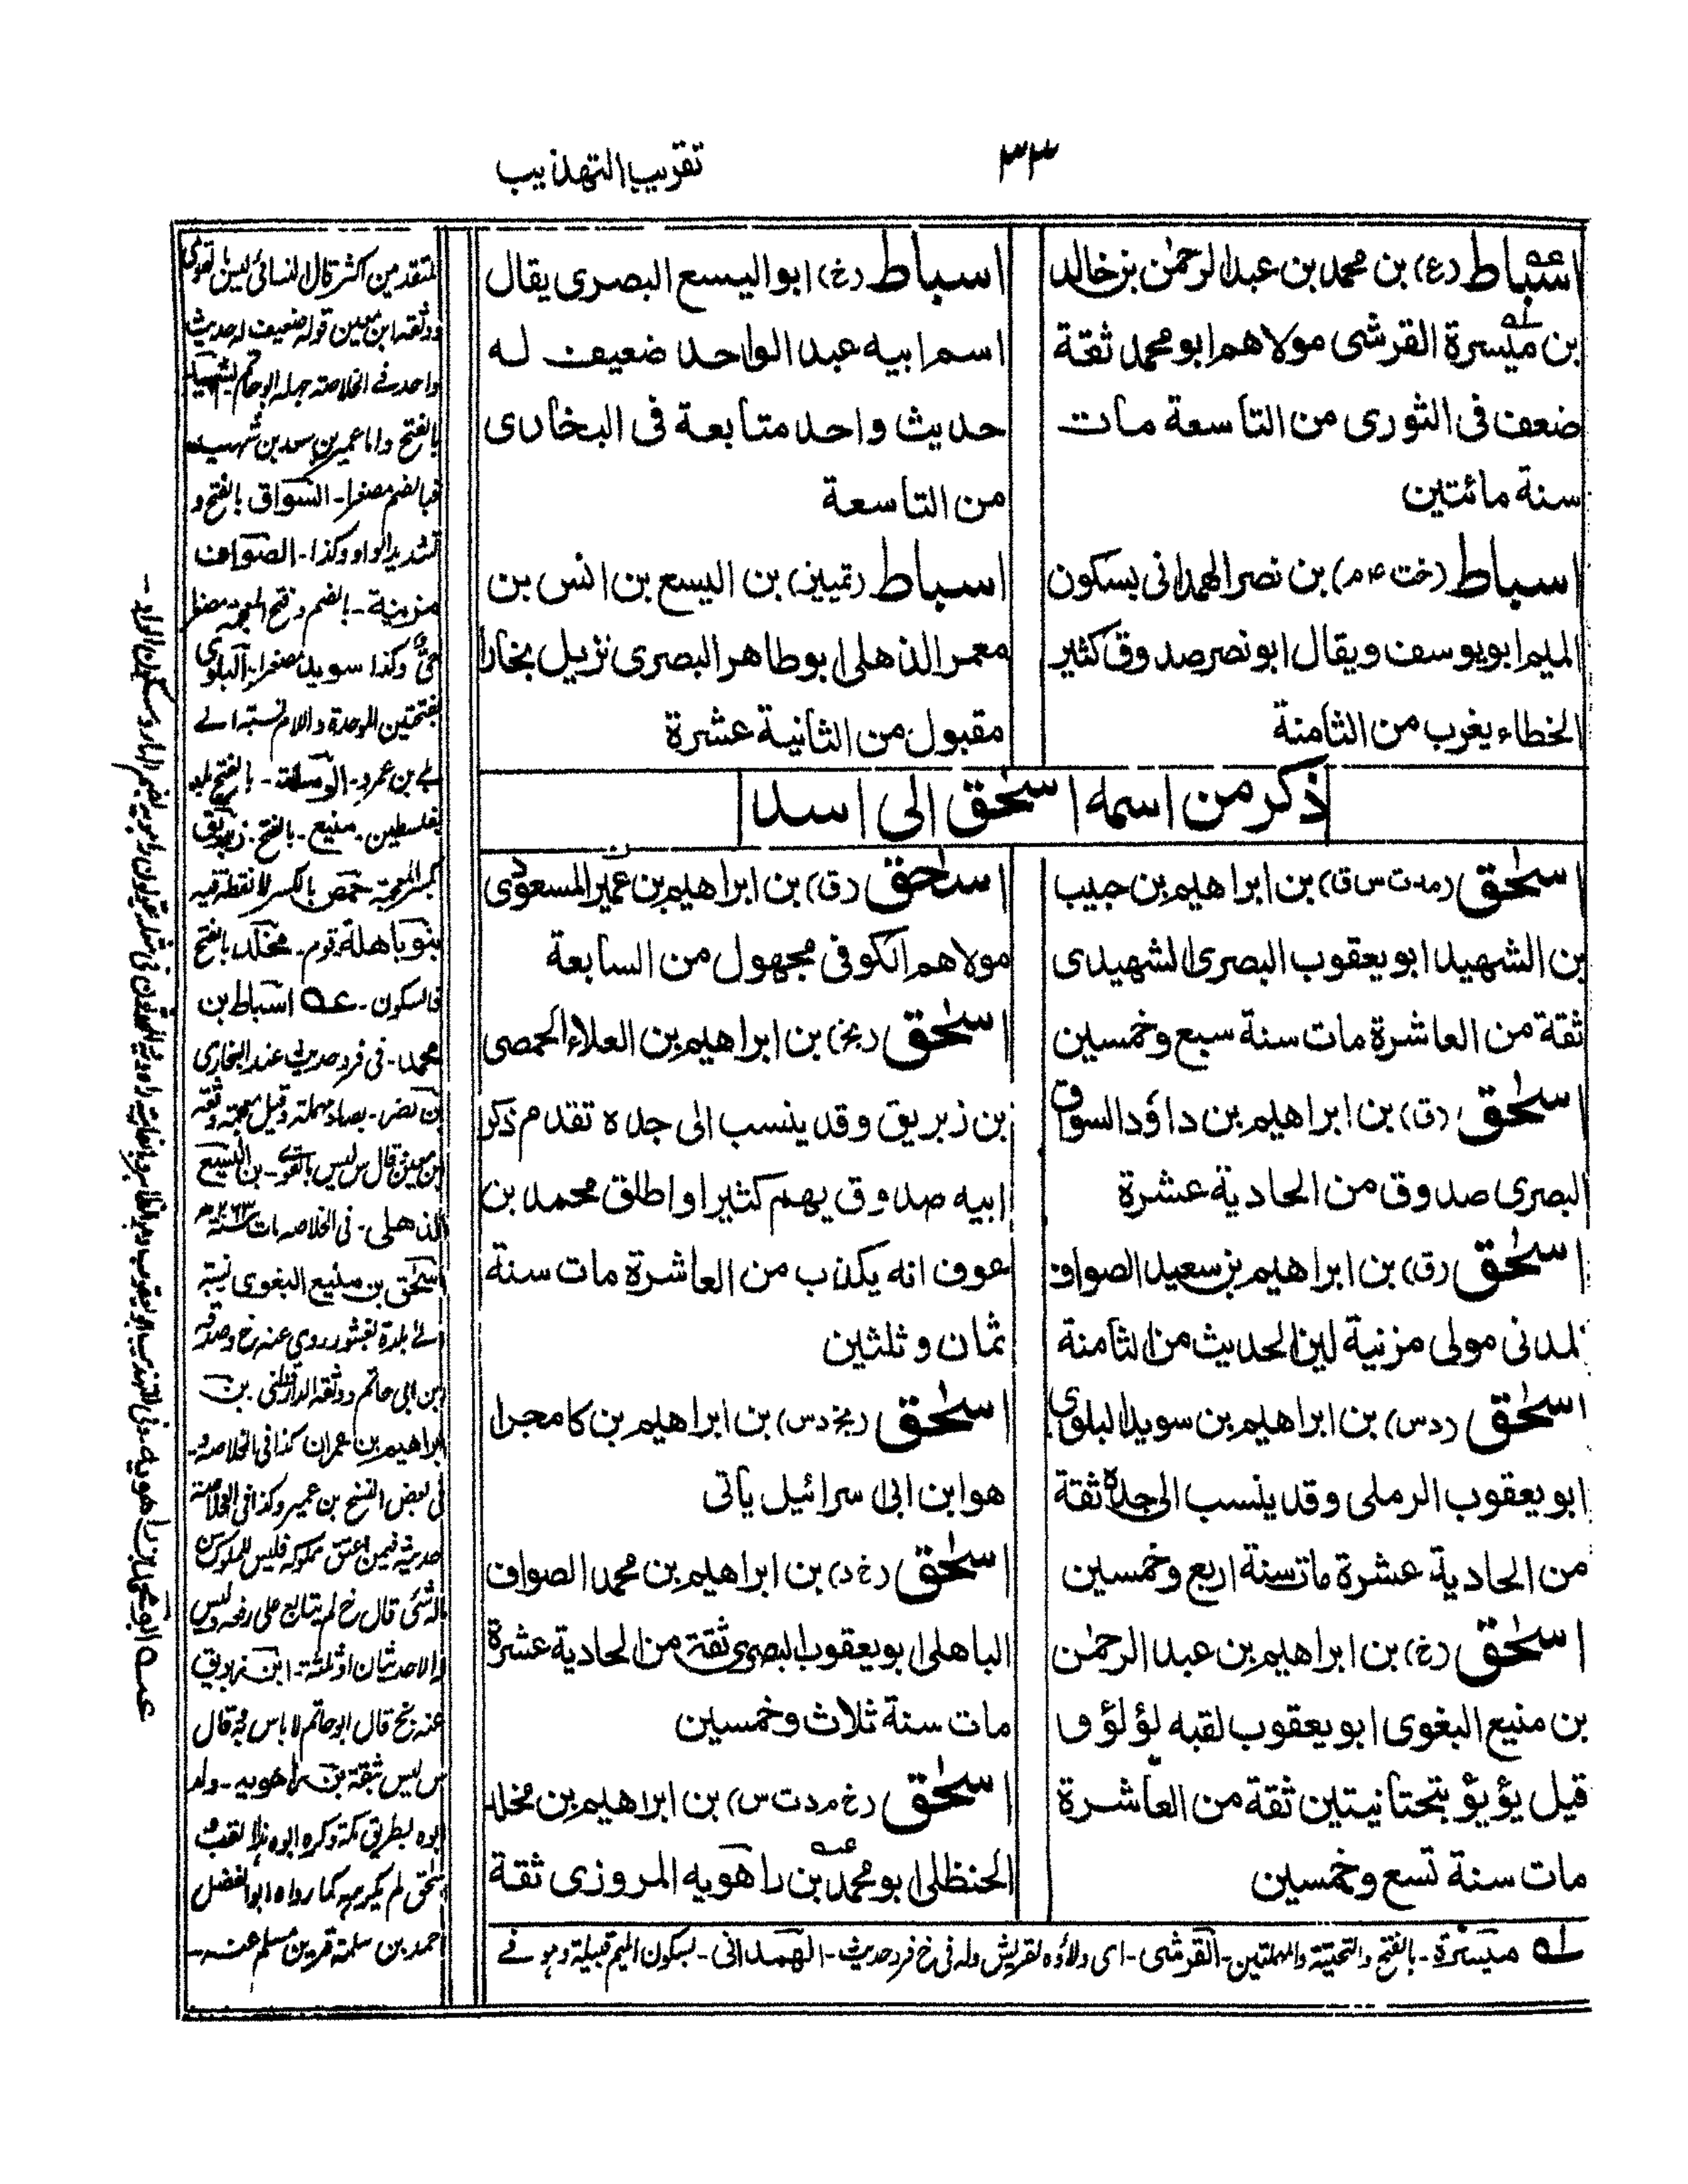 ٣٣
تقريب التهذيب
اسباط (ع) بن محمد بن عبد الرحمٰن بن خالد
بن ميسرة القرشى مولاهم ابو محمد ثقة
ضعف فى الثورى من التاسعة مات
سنة مائتين
اسباط (خت م ٤) بن نصر الهمدانى بسكون
الميم ابو يوسف ويقال ابو نصر صدوق كثير
الخطاء يغرب من الثامنة
اسباط (خ) ابو اليسع البصرى يقال
اسم ابيه عبد الواحد ضعيف له
حديث واحد متابعة فى البخارى
من التاسعة
اسباط (تمييز) بن اليسع بن انس بن
معمر الذهلى ابو طاهر البصرى نزيل بخارا
مقبول من الثانية عشرة
ذكر من اسمه اسحٰق الى اسد
اسحٰق (مد ت س ق) بن ابراهيم بن حبيب
بن الشهيد ابو يعقوب البصرى الشهيدى
ثقة من العاشرة مات سنة سبع وخمسين
اسحٰق (ق) بن ابراهيم بن داؤد السواق
البصرى صدوق من الحادية عشرة
اسحٰق (ق) بن ابراهيم بن سعيد الصواف
المدنى مولى مزنية لين الحديث من الثامنة
اسحٰق (د س) بن ابراهيم بن سويد البلوى
ابو يعقوب الرملى وقد ينسب الى جده ثقة
من الحادية عشرة مات سنة اربع وخمسين
اسحٰق (خ) بن ابراهيم بن عبد الرحمٰن
بن منيع البغوى ابو يعقوب لقبه لؤلؤ و
قيل يؤيؤ بتحتانيتين ثقة من العاشرة
مات سنة تسع وخمسين
اسحٰق (ق) بن ابراهيم بن عمير المسعودى
مولاهم الكوفى مجهول من السابعة
اسحٰق (بخ) بن ابراهيم بن العلاء الحمصى
بن زبريق وقد ينسب الى جده تقدم ذكر
ابيه صدوق يهم كثيرا واطلق محمد بن
عوف انه يكذب من العاشرة مات سنة
ثمان وثلثين
اسحٰق (بخ د س) بن ابراهيم بن كامجرا
هو ابن ابى اسرائيل يأتى
اسحٰق (خ د) بن ابراهيم بن محمد الصواف
الباهلى ابو يعقوب البصرى ثقة من الحادية عشرة
مات سنة ثلاث وخمسين
اسحٰق (خ م د ت س) بن ابراهيم بن مخلد
الحنظلى ابو محمد بن راهويه المروزى ثقة
له ميسرة - بالفتح والتحتية والمهملتين - القرشى - اى ولاؤه لقريش وله فى خ فرد حديث - الهمدانى - بسكون الميم قبيلة وهو في
المتقدمين اكثر قال النسائى ليس بالقوى
ووثقه ابن معين قوله ضعيف له حديث
واحد في الخلاصة جهله ابو حاتم الشهيد
بالفتح واما عمير بن سعد بن شهيد
فبالضم مصغرا - السواق بالفتح و
تشديد الواو وكذا - الصواف
مزينة - بالضم وفتح المعجمة مصغرا
وكذا سويد مصغرا - البلوى
بفتحتين الموحدة واللام نسبة الے
بلي بن عمرو - الرملة - بالفتح بلد
بفلسطين - منيع - بالفتح - زبريق
بكسر المعجمة حمص بالكسر لا نقطة فيه
بنو باهلة قوم - مخلد بالفتح
فالسكون - عه اسباط بن
محمد - فى فرد حديث عند البخارى
بن نصر - بصاد مهملة وقيل معجمة وثقه
ابن معين قال س ليس بالقوى - بن اليسع
الذهلى - فى الخلاصة مات سنة ٢٦٣ھ
اسحٰق بن منيع البغوى نسبة
الے بلدة بغشور روى عنه خ وصدقه
ابن ابى حاتم ووثقه الدارقطنى - بن
ابراهيم بن عمران كذا فى الخلاصة و
فى بعض النسخ بن عمير وكذا فى الخلاصة
حديثه فيمن اعتق مملوكه فليس للمملوك من
ماله شئ قال خ لم يتابع على رفعه وليس
له الا حديثان او ثلثة - ابن زبريق
عنه بخ قال ابو حاتم لا باس به قال
س ليس بثقة بن راهويه - ولد
ابوه بطريق مكة وكره ابوه هذا لقب
اسحٰق لم يكرهه كما رواه ابو الفضل
احمد بن سلمة قرين مسلم عنه -